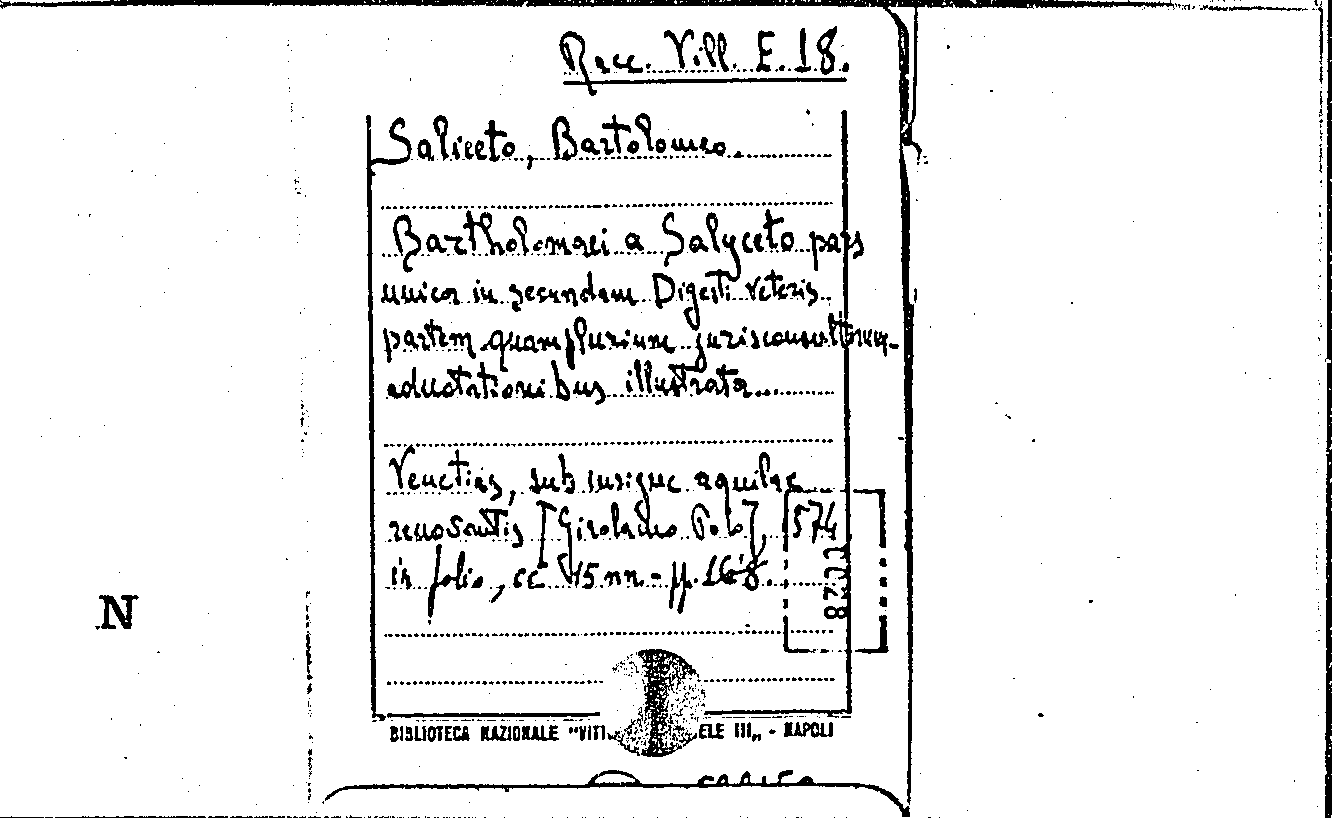 Racc. Vill. E. 18.
Saliceto, Bartolomeo.
Bartholomaei a Salyceto pars
unica in secundam Digesti veteris
partem quamplurium jurisconsultorum
adnotationibus illustrata...
Venetiis, sub insigne aquilae
renovantis [Girolamo Polo], 1574
in folio, cc. 15 nn. - pp. 168.
N
BIBLIOTECA NAZIONALE "VITT ELE III„ - NAPOLI